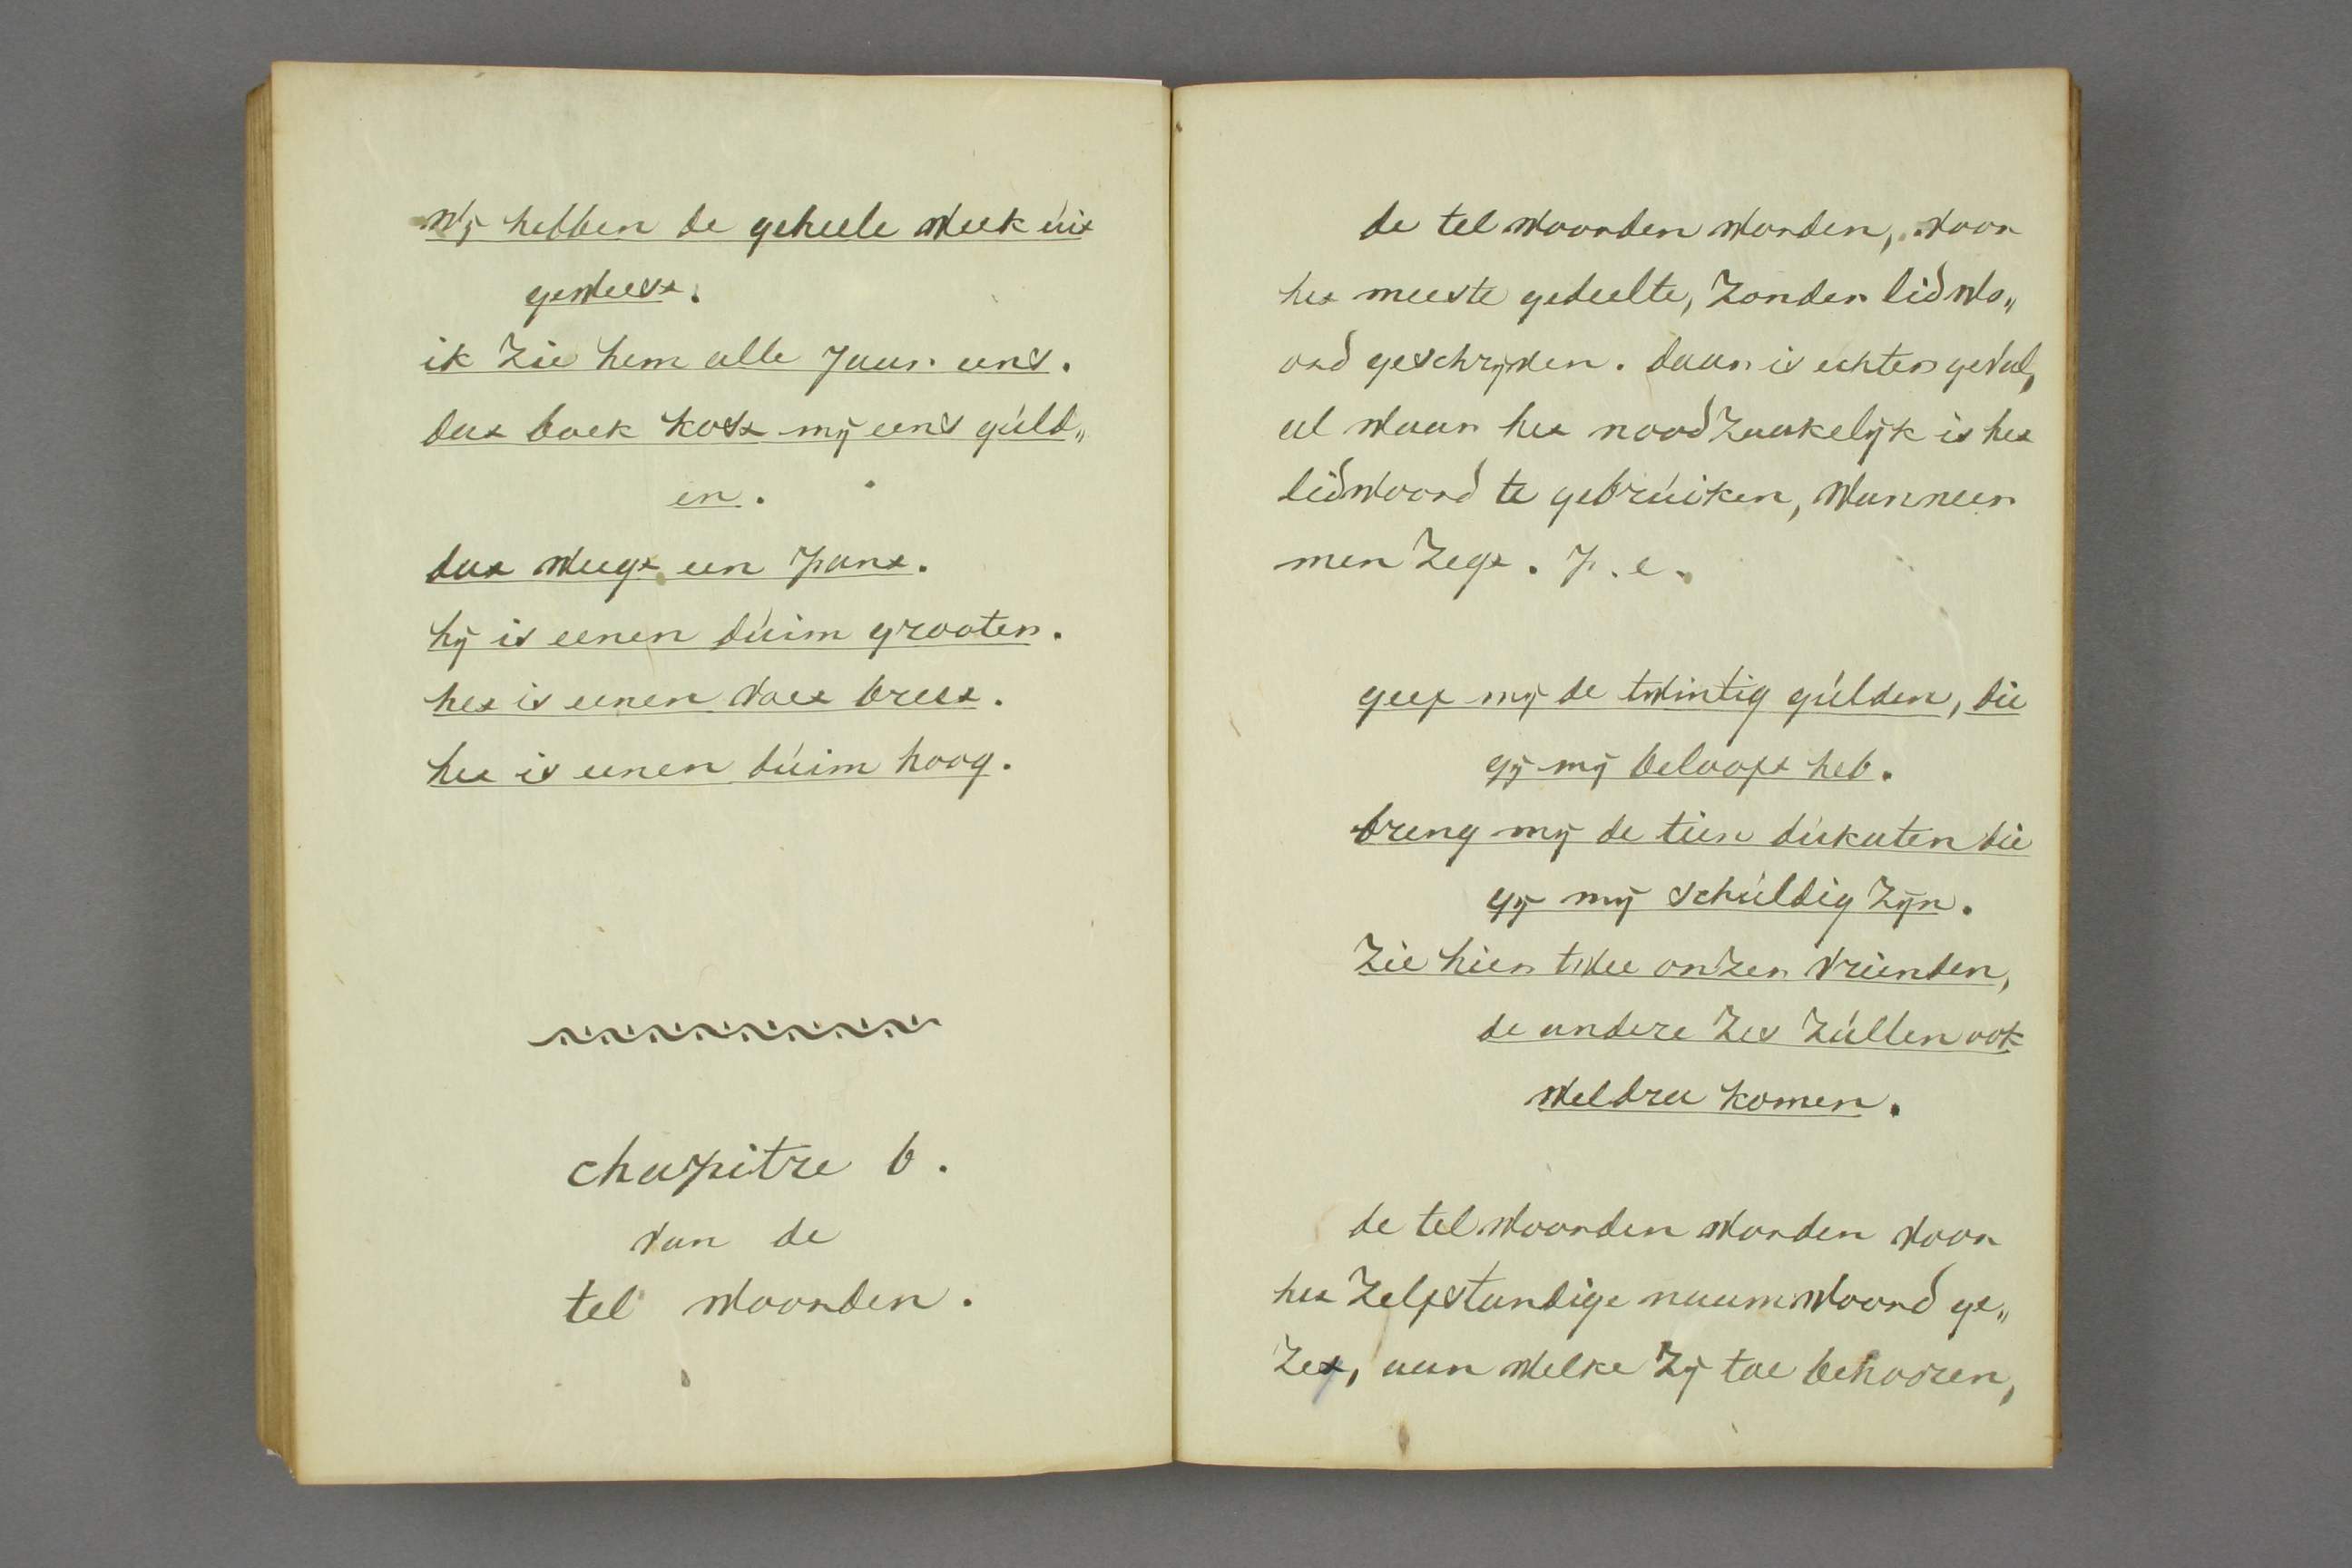 wij hebben de geheele week uit
geweest.
ik zie hem alle Jaar eens.
dat boek kost mij eens guld„
en.
dat weegt een pant.
hij is eenen duim grooter.
het is eenen voet breet.
het is eenen duim hoog.
chapitre 6.
van de
tel woorden.
de tel woorden worden, voor
het meeste gedeelte, zonder lidwo„
ord geschrijven. daar is echter geval,
al waar het noodzaakelijk is het
lidwoord te gebruiken, wanneer
men zegt. p. e.
geef mij de twintig gulden, die
gij mij belooft heb.
breng mij de tien dukaten die
gij mij schuldig zijn.
zie hier twee onzer vrienden,
de andere zes zullen ook
weldra komen.
de tel woorden worden voor
het zelfstandige naamwoord ge„
zet, aan welke zij toe behooren,